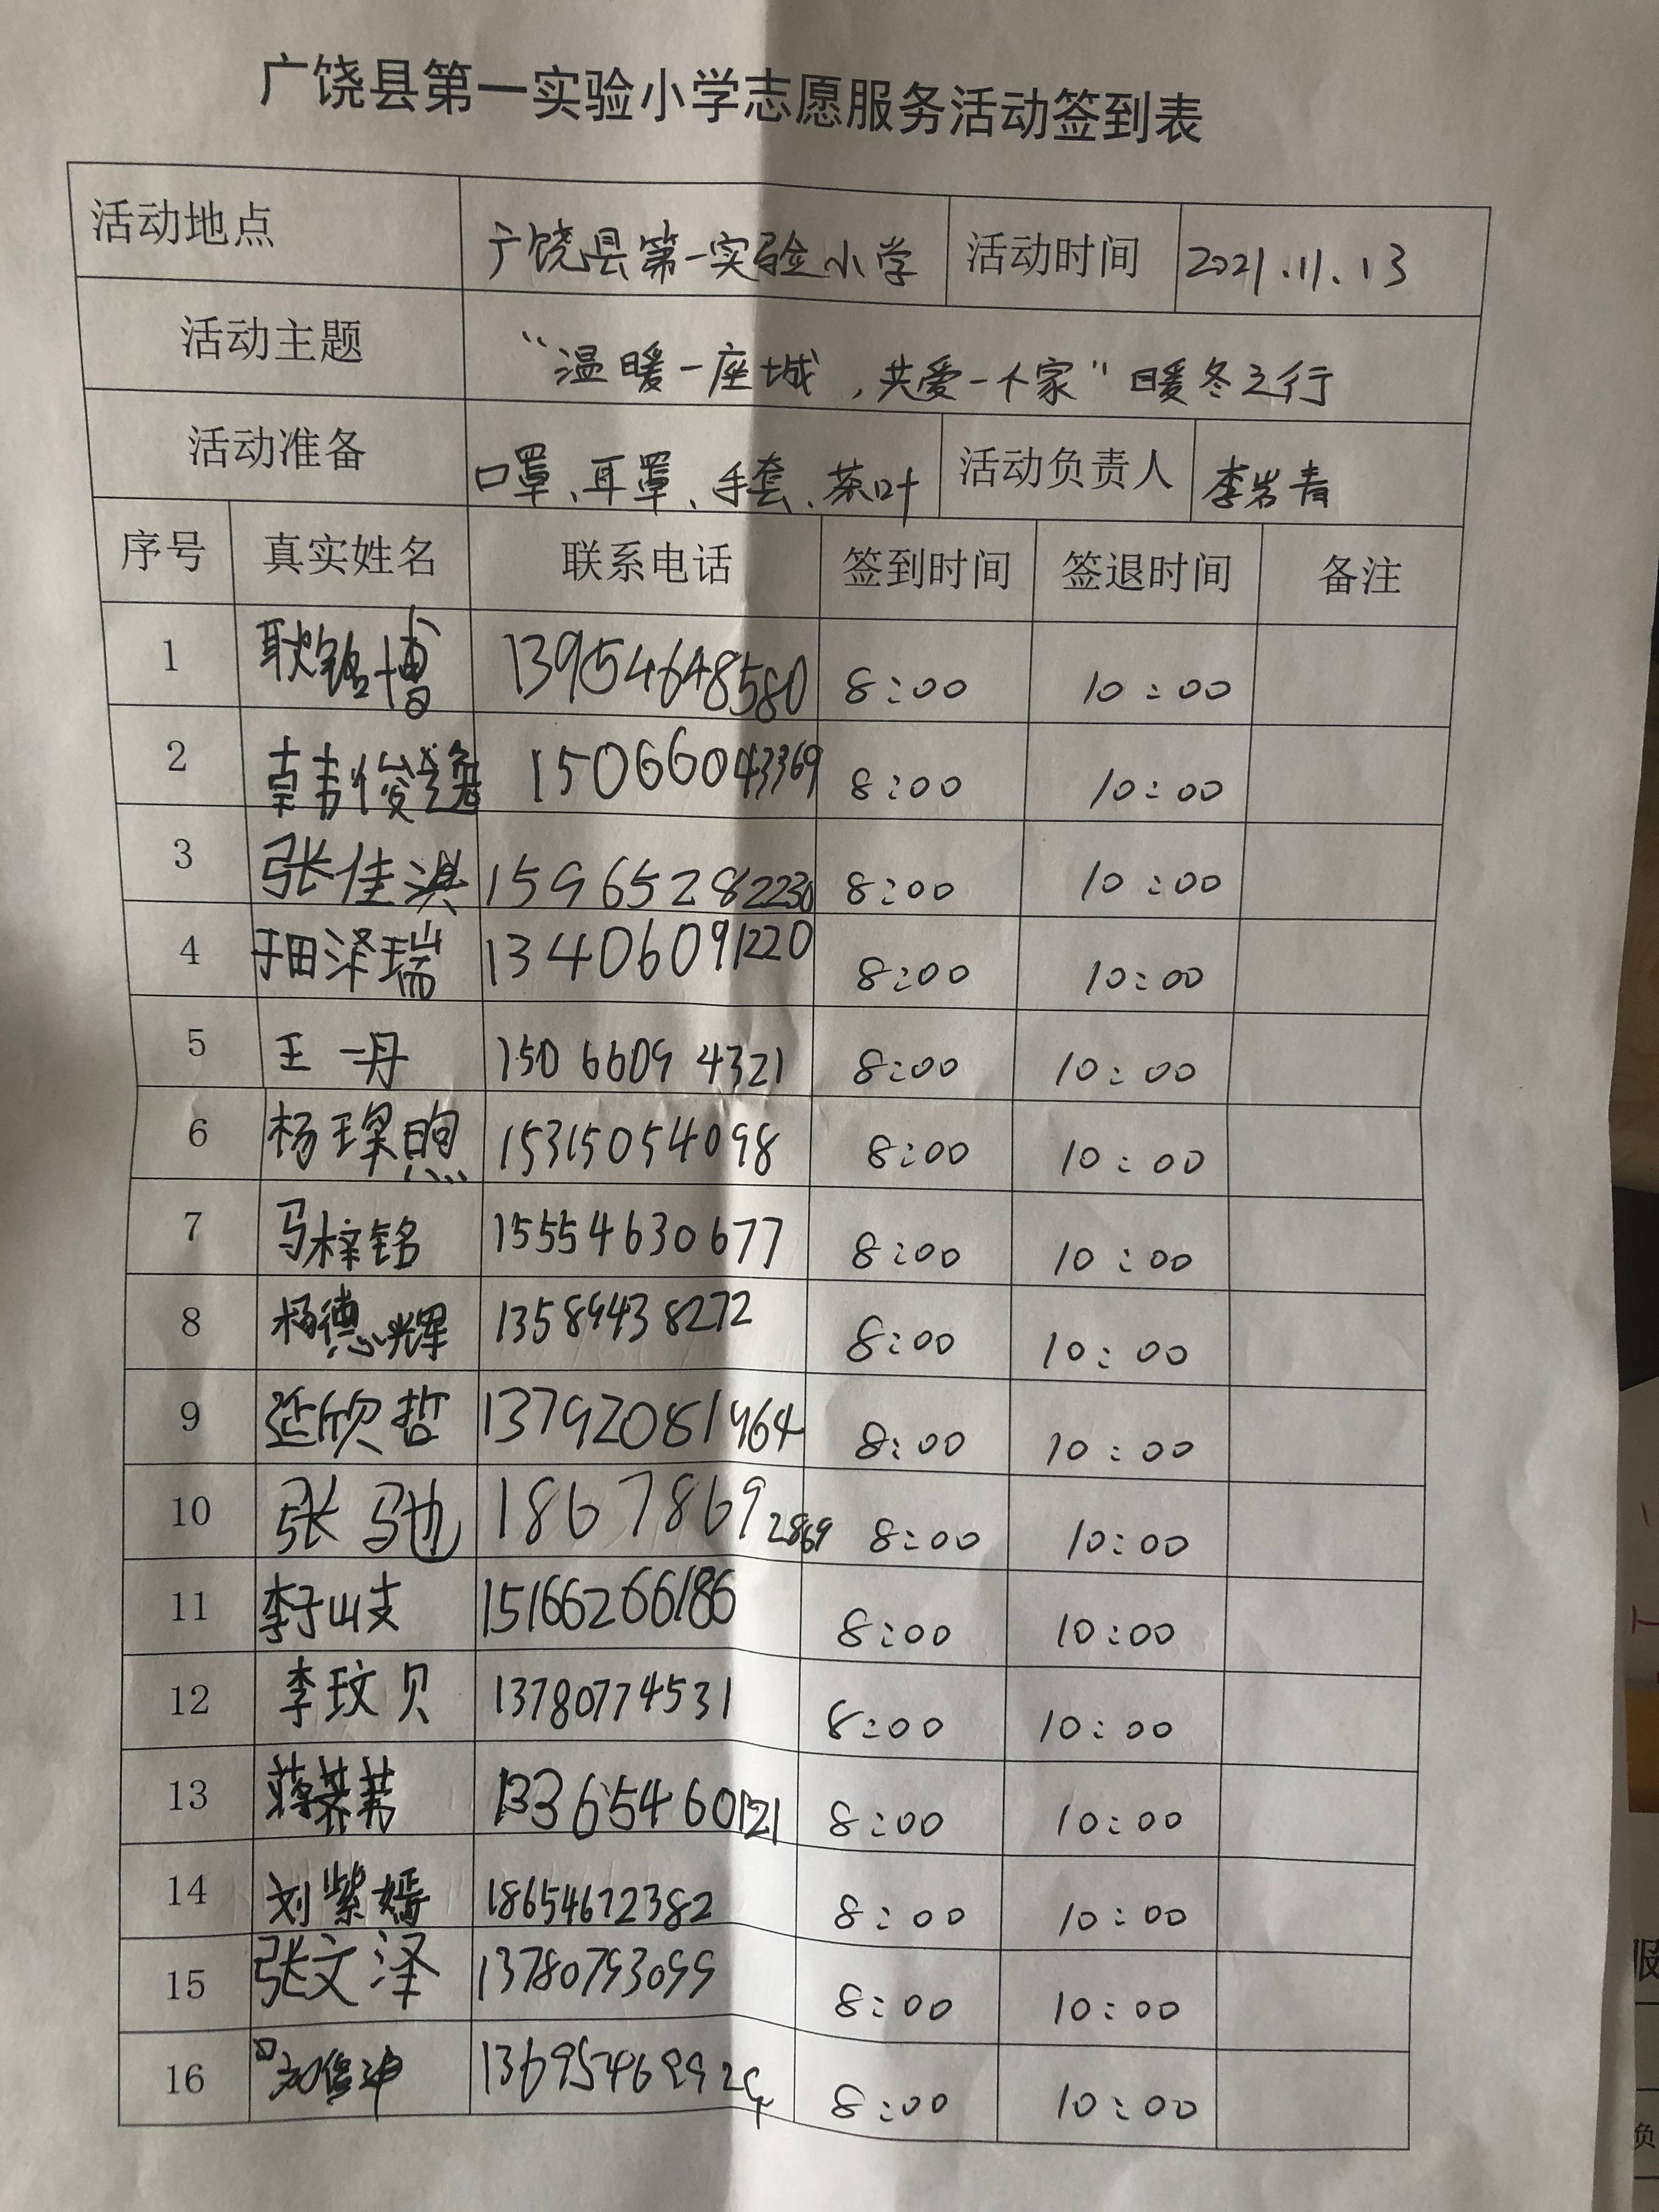 广饶县第一实验小学志愿服务活动签到表
活动地点 广饶县第一实验小学 活动时间 2021.11.13
活动主题 “温暖一座城,共爱一个家”暖冬之行
活动准备 口罩、耳罩、手套、茶叶 活动负责人 李岩青
序号 真实姓名 联系电话 签到时间 签退时间 备注
1 耿铭博 13954648580 8:00 10:00
2 韦俊逸 15066043369 8:00 10:00
3 张佳淇 15965282230 8:00 10:00
4 于田泽瑞 13406091220 8:00 10:00
5 王一丹 15066094321 8:00 10:00
6 杨琛煦 15315054098 8:00 10:00
7 马梓铭 15554630677 8:00 10:00
8 杨德辉 13589438272 8:00 10:00
9 延欣哲 13792081964 8:00 10:00
10 张驰 18678692869 8:00 10:00
11 李子山支 15166266186 8:00 10:00
12 李玟贝 13780774531 8:00 10:00
13 13365460121 8:00 10:00
14 刘紫嫣 18654672382 8:00 10:00
15 张文泽 13780793099 8:00 10:00
16 8:00 10:00
服
负